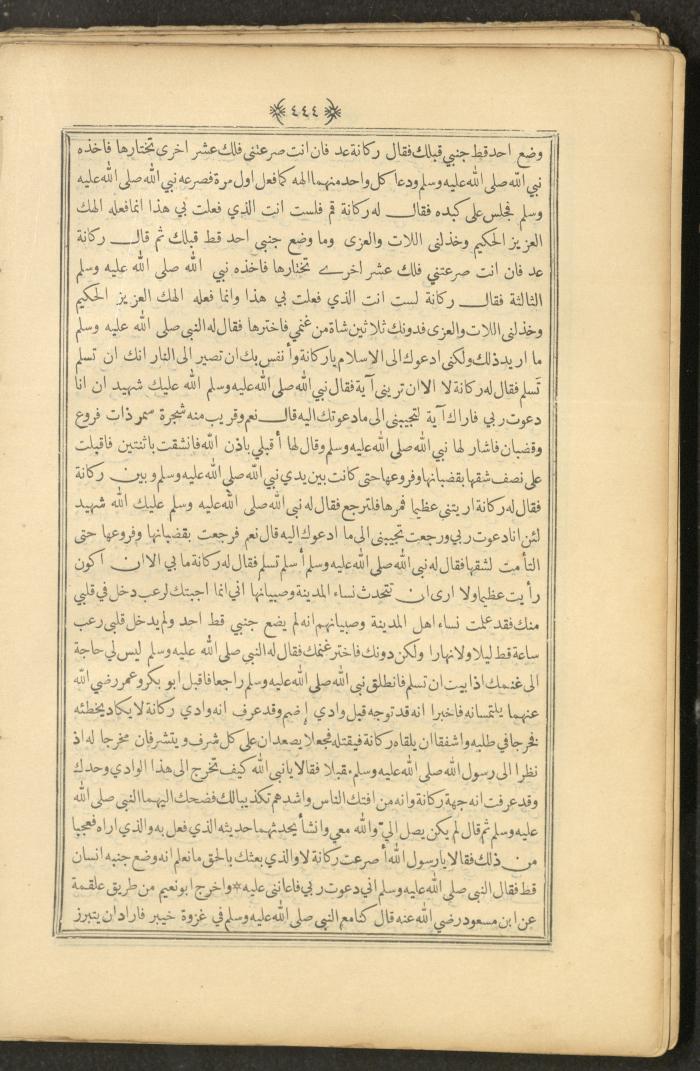 ﴿٤٤٤﴾
وضع احد قط جنبي قبلك فقال ركانة عد فان انت صرعتني فلك عشر اخرى تختارها فاخذه
نبي الله صلى الله عليه وسلم ودعا كل واحد منهما الهه كما فعل اول مرة فصرعه نبي الله صلى الله عليه
وسلم فجلس على كبده فقال له ركانة قم فلست انت الذي فعلت بي هذا انما فعله الهك
العزيز الحكيم وخذلني اللات والعزى وما وضع جنبي احد قط قبلك ثم قال ركانة
عد فان انت صرعتني فلك عشر اخرى تختارها فاخذه نبي الله صلى الله عليه وسلم
الثالثة فقال ركانة لست انت الذي فعلت بي هذا وانما فعله الهك العزيز الحكيم
وخذلني اللات والعزى فدونك ثلاثين شاة من غنمي فاخترها فقال له النبي صلى الله عليه وسلم
ما اريد ذلك ولكنى ادعوك الى الاسلام ياركانة وأنفس بك ان تصير الى النار انك ان تسلم
تَسلم فقال له ركانة لا الا ان تريني آية فقال نبي الله صلى الله عليه وسلم الله عليك شهيد ان انا
دعوت ربي فاراك آية لتجيبنى الى ما دعوتك اليه قال نعم وقريب منه شجرة سمر ذات فروع
وقضبان فاشار لها نبي الله صلى الله عليه وسلم وقال لها أقبلي باذن الله فانشقت باثنتين فاقبلت
على نصف شقها بقضبانها وفروعها حتى كانت بين يدي نبي الله صلى الله عليه وسلم وبين ركانة
فقال له ركانة اريتني عظيما فمرها فلترجع فقال له نبي الله صلى الله عليه وسلم عليك الله شهيد
لئن انا دعوت ربي ورجعت تجيبنى الى ما ادعوك اليه قال نعم فرجعت بقضبانها وفروعها حتى
التأمت لشقها فقال له نبي الله صلى الله عليه وسلم أسلم تسلم فقال له ركانة ما بي الا ان اكون
رأيت عظيما ولا ارى ان تتحدث نساء المدينة وصبيانها اني انما اجبتك لرعب دخل في قلبي
منك فقد علمت نساء اهل المدينة وصبيانهم انه لم يضع جنبي قط احد ولم يدخل قلبي رعب
ساعة قط ليلا ولا نهارا ولكن دونك فاختر غنمك فقال له النبي صلى الله عليه وسلم ليس لي حاجة
الى غنمك اذا بيت ان تسلم فانطلق نبي الله صلى الله عليه وسلم راجعا فاقبل ابو بكر وعمر رضي الله
عنهما يلتمسانه فاخبرا انه قد توجه قبل وادي إضم وقد عرف انه وادي ركانة لا يكاد يخطئه
فخرجا في طلبه واشفقا ان يلقاه ركانة فيقتله فجعلا يصعدان على كل شرف ويتشرفان مخرجا له اذ
نظرا الى رسول الله صلى الله عليه وسلم مقبلا فقالا يانبي الله كيف تخرج الى هذا الوادي وحدك
وقد عرفت انه جهة ركانة وانه من افتك الناس واشدهم تكذيبا لك فضحك اليهما النبي صلى الله
عليه وسلم ثم قال لم يكن يصل الي والله معي وانشأ يحدثهما حديثه الذي فعل به والذي اراه فعجبا
من ذلك فقالا يارسول الله أصرعت ركانة لا والذي بعثك بالحق ما نعلم انه وضع جنبه انسان
قط فقال النبي صلى الله عليه وسلم اني دعوت ربي فاعانني عليه * واخرج ابو نعيم من طريق علقمة
عن ابن مسعود رضي الله عنه قال كنا مع النبي صلى الله عليه وسلم في غزوة خيبر فاراد ان يتبرز